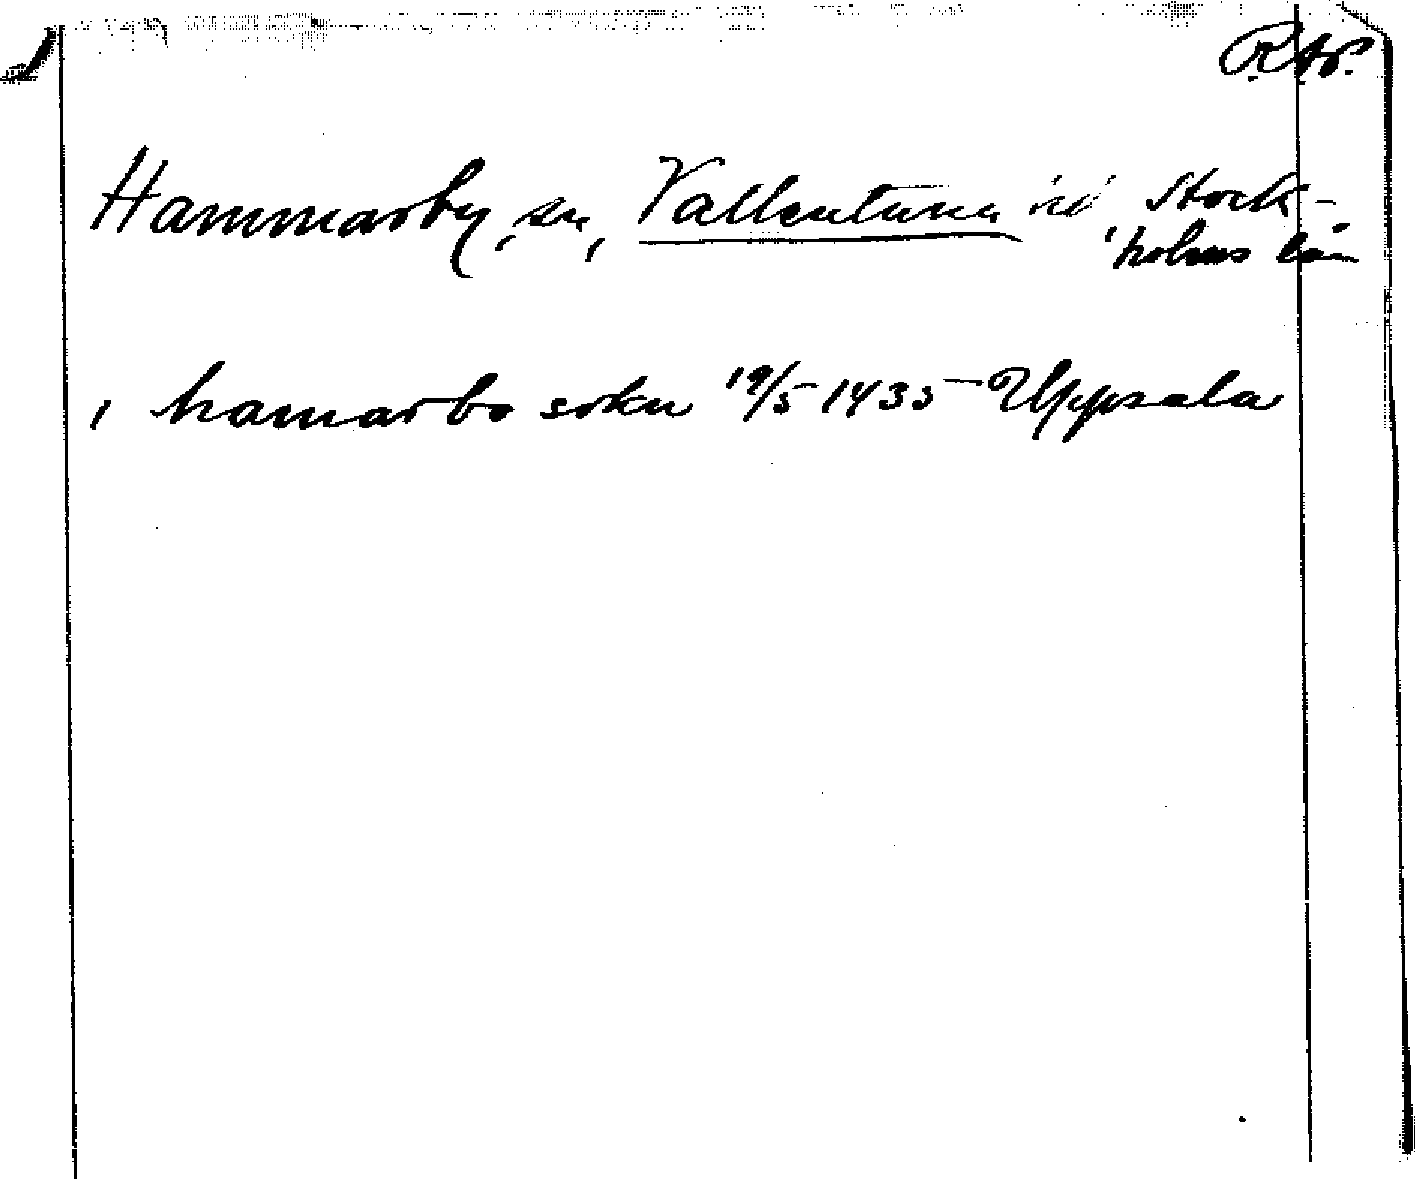 RAp.
Hammarby, sn, Vallentuna hd Stock-
holms län
i hamarbo sokn 19/5 1435 Uppsala